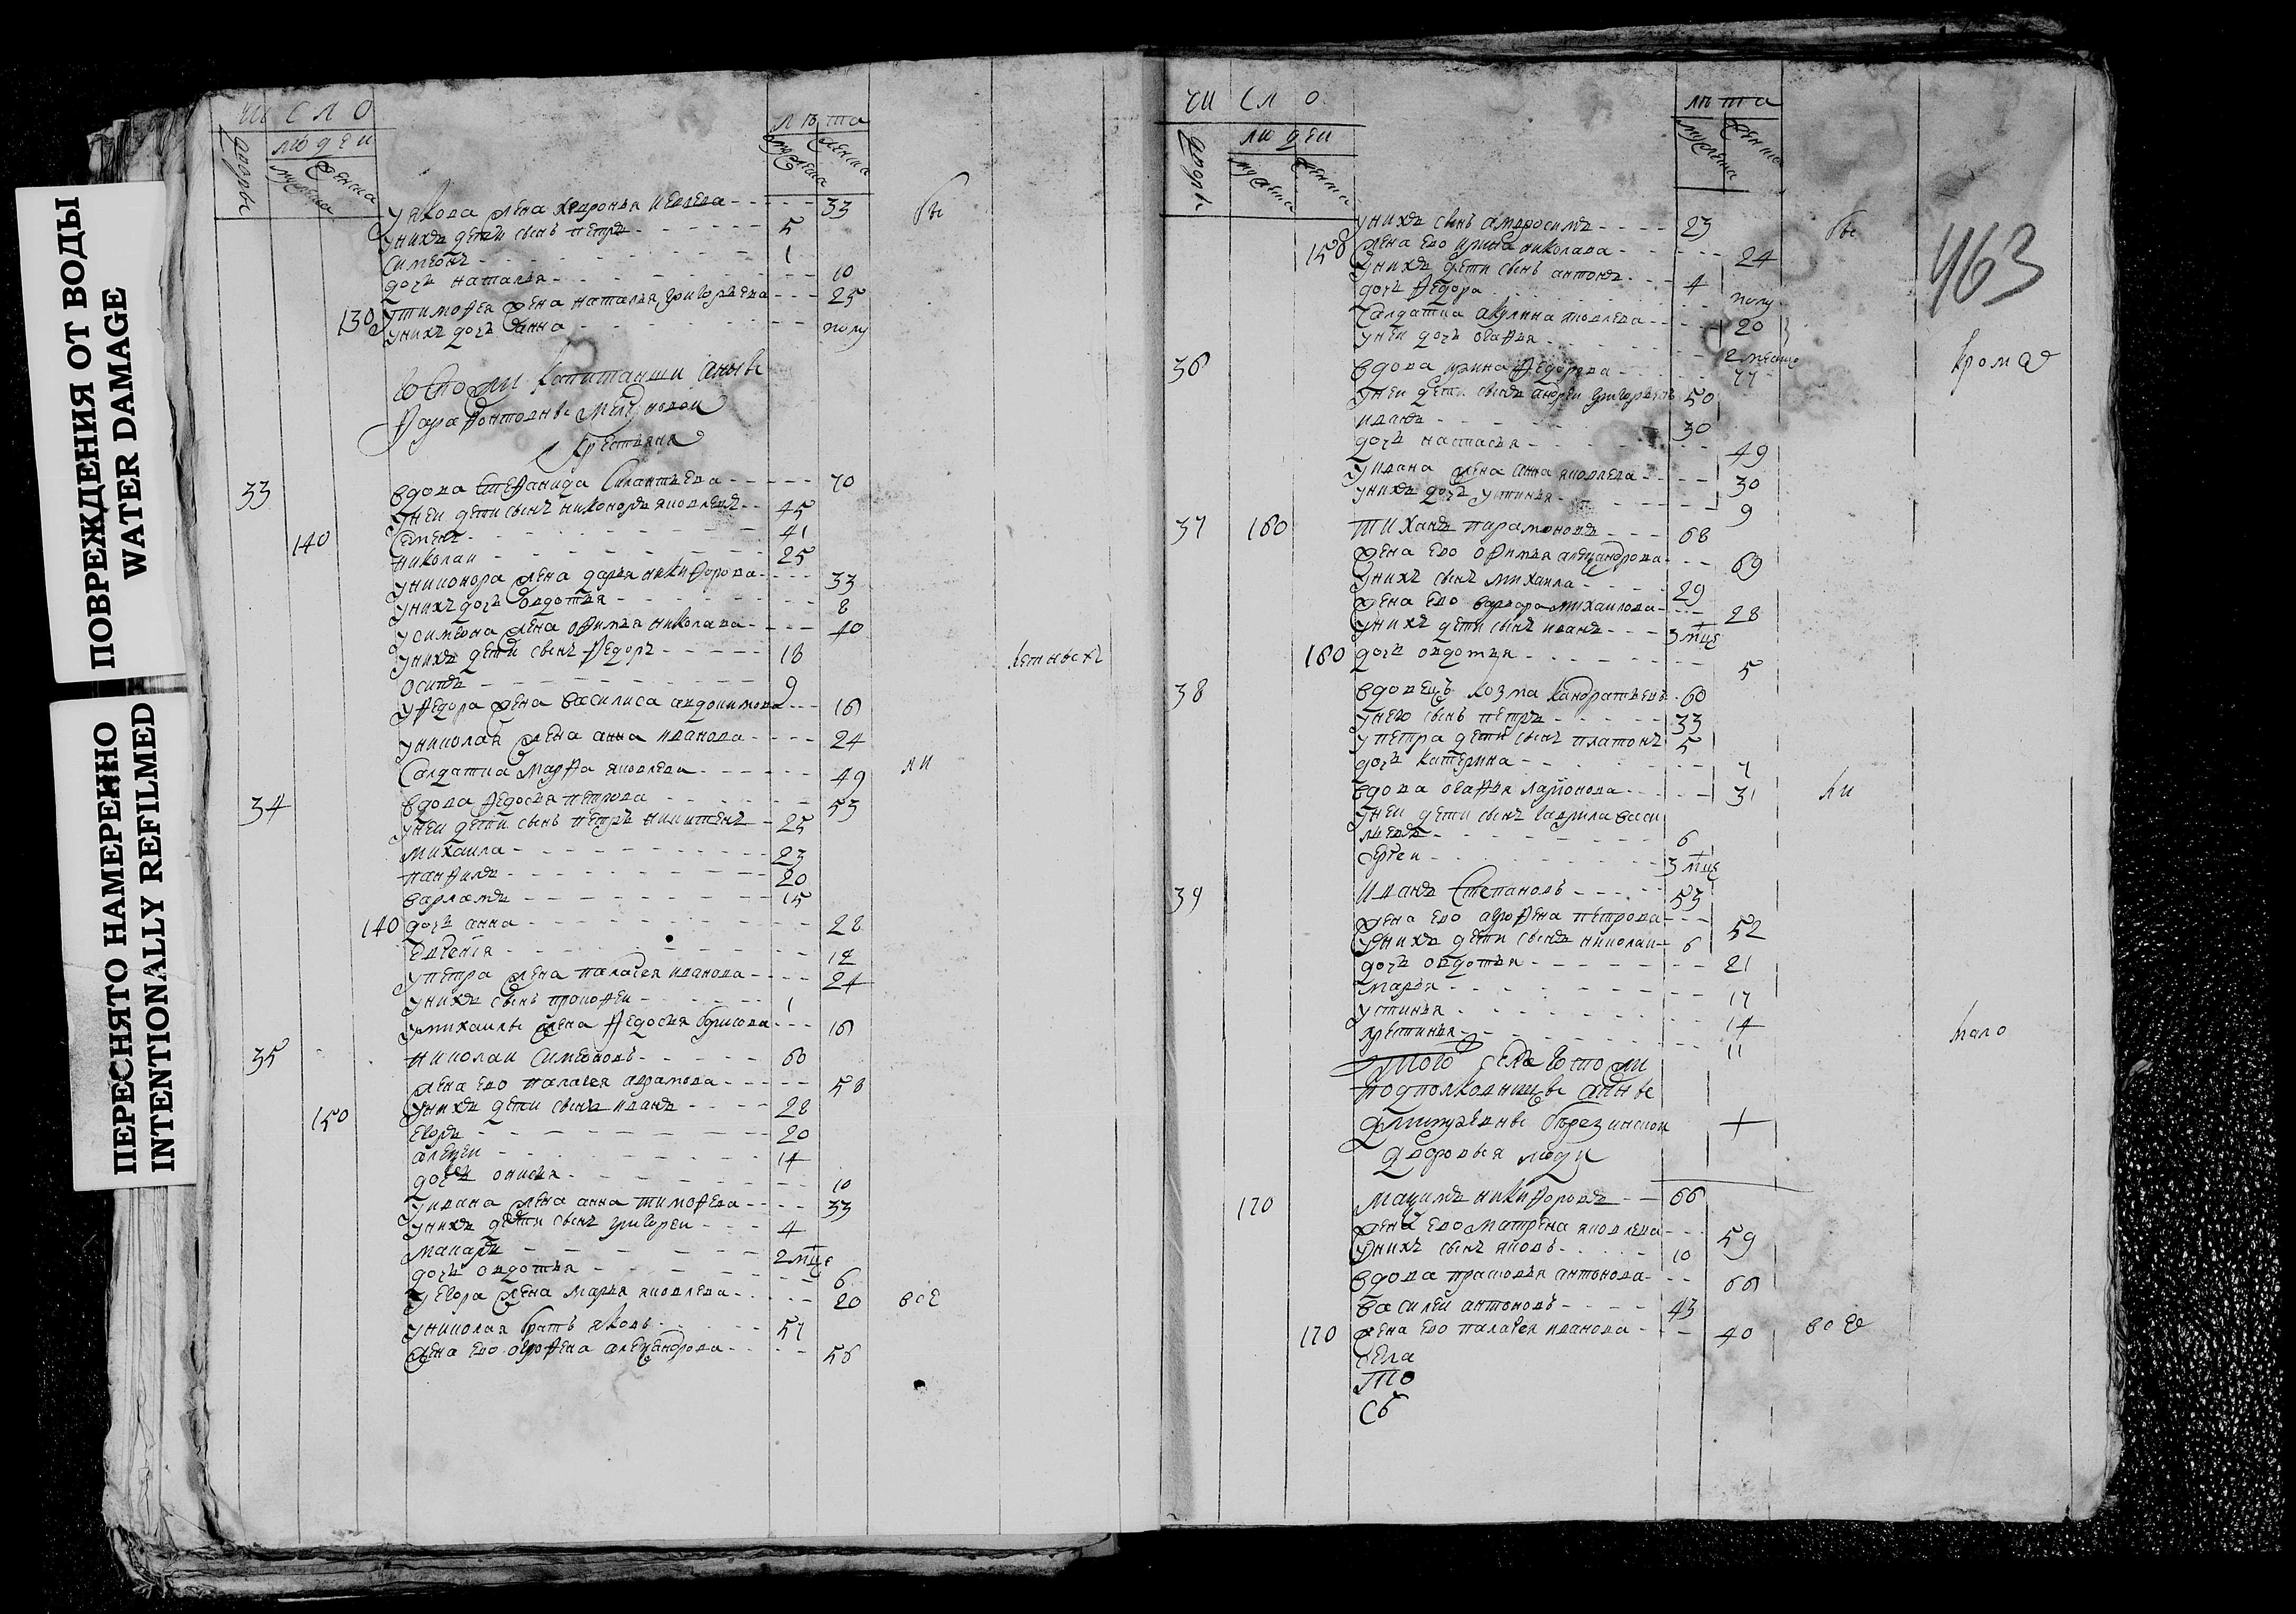 ПОВРЕЖДЕНИЯ ОТ ВОДЫ
WATER DAMAGE
ПЕРЕСНЯТО НАМЕРЕННО
INTENTIONALLY REFILMED
число
лѣта
дворы
людеи
мужеска
женска
мужеска
женска
у якова жена хавронья 33 бы
у нихъ дети сынъ петръ 5
симеонъ 1
дочь наталья 10
130 у тимофея жена наталья григорьева 25
у нихъ дочь анна полу
Госпожи капитанши аннѣ
крестьяня
33 вдова стефанида силантьева 70
у неи дети сынъ никоноръ яковлевъ 45
140 семенъ 41
николаи 25
у никонора жена дарья никифорова 33
у нихъ дочь овдотья 8
у симеона жена офимья николаева 40
у нихъ дети сынъ федоръ 18 летныхъ
осипъ 9
у федора жена василиса 16
у николая жена анна иванова 24
салдатка марфа яковлева 49 ли
34 вдова федосья петрова 53
у неи дети сынъ петръ никитенъ 25
михаила 23
панфилъ 20
варламъ 15
140 дочь анна 28
евгенiя 14
у петра жена палагея иванова 24
у нихъ сынъ прокофеи 1
у михаилы жена федосья борисова 16
35 николаи симеоновъ 60
жена ево палагея аврамова 58
150 у нихъ дети сынъ иванъ 28
егоръ 20
алексеи 14
дочь анисья 10
у ивана жена анна тимофева 33
у нихъ дети сынъ григореи 4
макаръ 2 мцъ
дочь овдотья 6
у егора жена марья яковлева 20 все
у николая братъ яковъ 57
жена ево огрофена александрова 56
число
лѣта
дворы
людеи
мужеска
женска
мужеска
женска
463
у нихъ сынъ амвросимъ 23 бы
150 жена ево ирина николава 24
у нихъ дети сынъ антонъ 4
дочь федора полу
салдатка акулина яковлева 20
у неи дочь агафья 2
36 вдова ирина федорова 77 кромѣ
у неи дети сынъ андреи григорьевъ 50
иванъ 30
дочь настасья 49
у ивана жена анна яковлева 30
у нихъ дочь устинья 9
37 160 тиханъ парамоновъ 68
жена ево офимья александрова 69
у нихъ сынъ михаила 29
жена ево варвара михаилова 28
у нихъ дети сынъ иванъ 3 мцъ
160 дочь овдотья 5
38 вдовецъ козма кандратьевъ 60
у него сынъ петръ 33
у петра дети сынъ платонъ 5
дочь катерина 7
вдова агафья ларионова 31 ли
у неи дети сынъ гаврила васи
льевъ 6
сергеи 3 мцъ
39 иванъ степановъ 53
жена ево агрофена петрова 52
у нихъ дети сынъ николаи 6
дочь овдотья 21
марья 17
устинья 14 мало
хрестинья 11
того села госпожи
подполковницы аннѣ
дмитревнѣ березинскои
дворовыя люди
170 макимъ никифоровъ 66
жена ево матрена яковлева 59
у нихъ сынъ яковъ 10
вдова прасковья антонова 66
василеи антоновъ 43
170 жена ево палагея иванова 40 все
села
то
сб